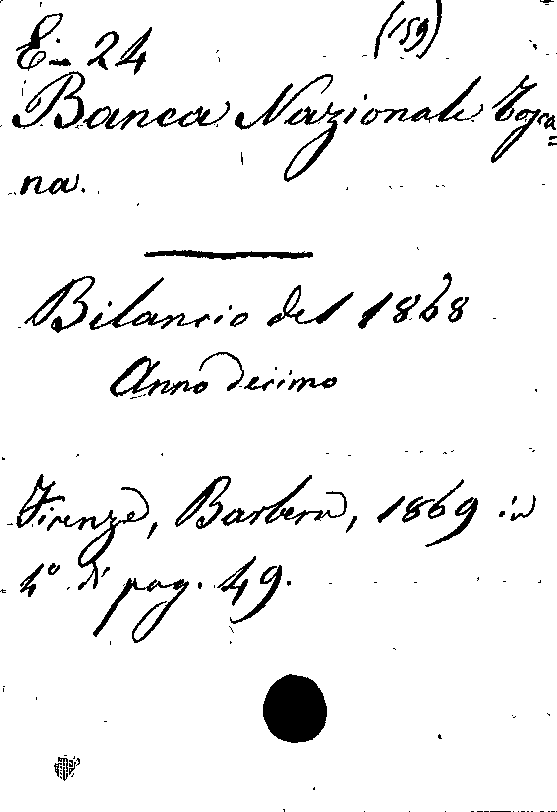 E. 24 (159)
Banca Nazionale Tosca=
na.
Bilancio del 1868
Anno decimo
Firenze, Barbera, 1869 in
4° di pag. 49.